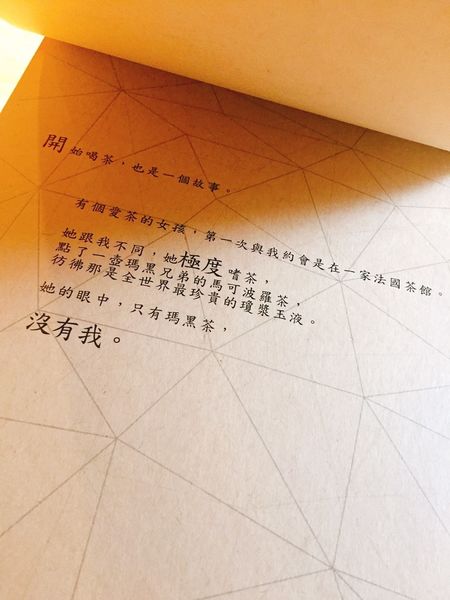 開始喝茶，也是一個故事。
有個愛茶的女孩，第一次與我約會是在一家法國茶館。
她跟我不同，她極度嗜茶，
點了一壺瑪黑兄弟的馬可波羅茶，
彷彿那是全世界最珍貴的瓊漿玉液。
她的眼中，只有瑪黑茶，
沒有我。